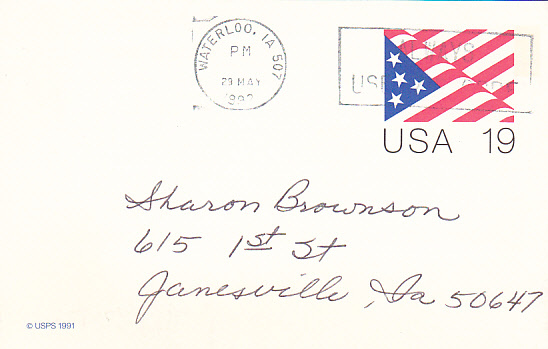 WATERLOO, IA 507
PM
29 MAY
ALWAYS
USE
USA 19
Sharon Brownson
615 1st St
Janesville, Ia 50647
© USPS 1991